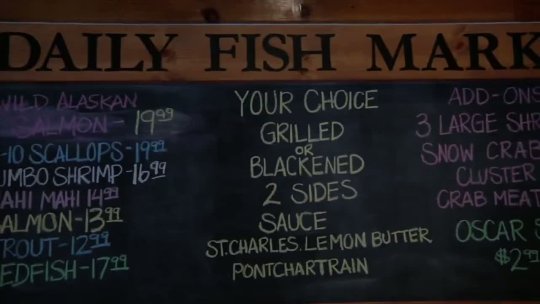 DAILY FISH MARK
WILD ALASKAN
SALMON - 19.99
-10 SCALLOPS - 19.99
UMBO SHRIMP - 16.99
AHI MAHI 14.99
ALMON - 13.99
ROUT - 12.99
EDFISH - 17.99
YOUR CHOICE
GRILLED
OR
BLACKENED
2 SIDES
SAUCE
ST. CHARLES, LEMON BUTTER
PONTCHARTRAIN
ADD-ONS
3 LARGE SHR
SNOW CRAB
CLUSTER
CRAB MEAT
OSCAR S
$2.99